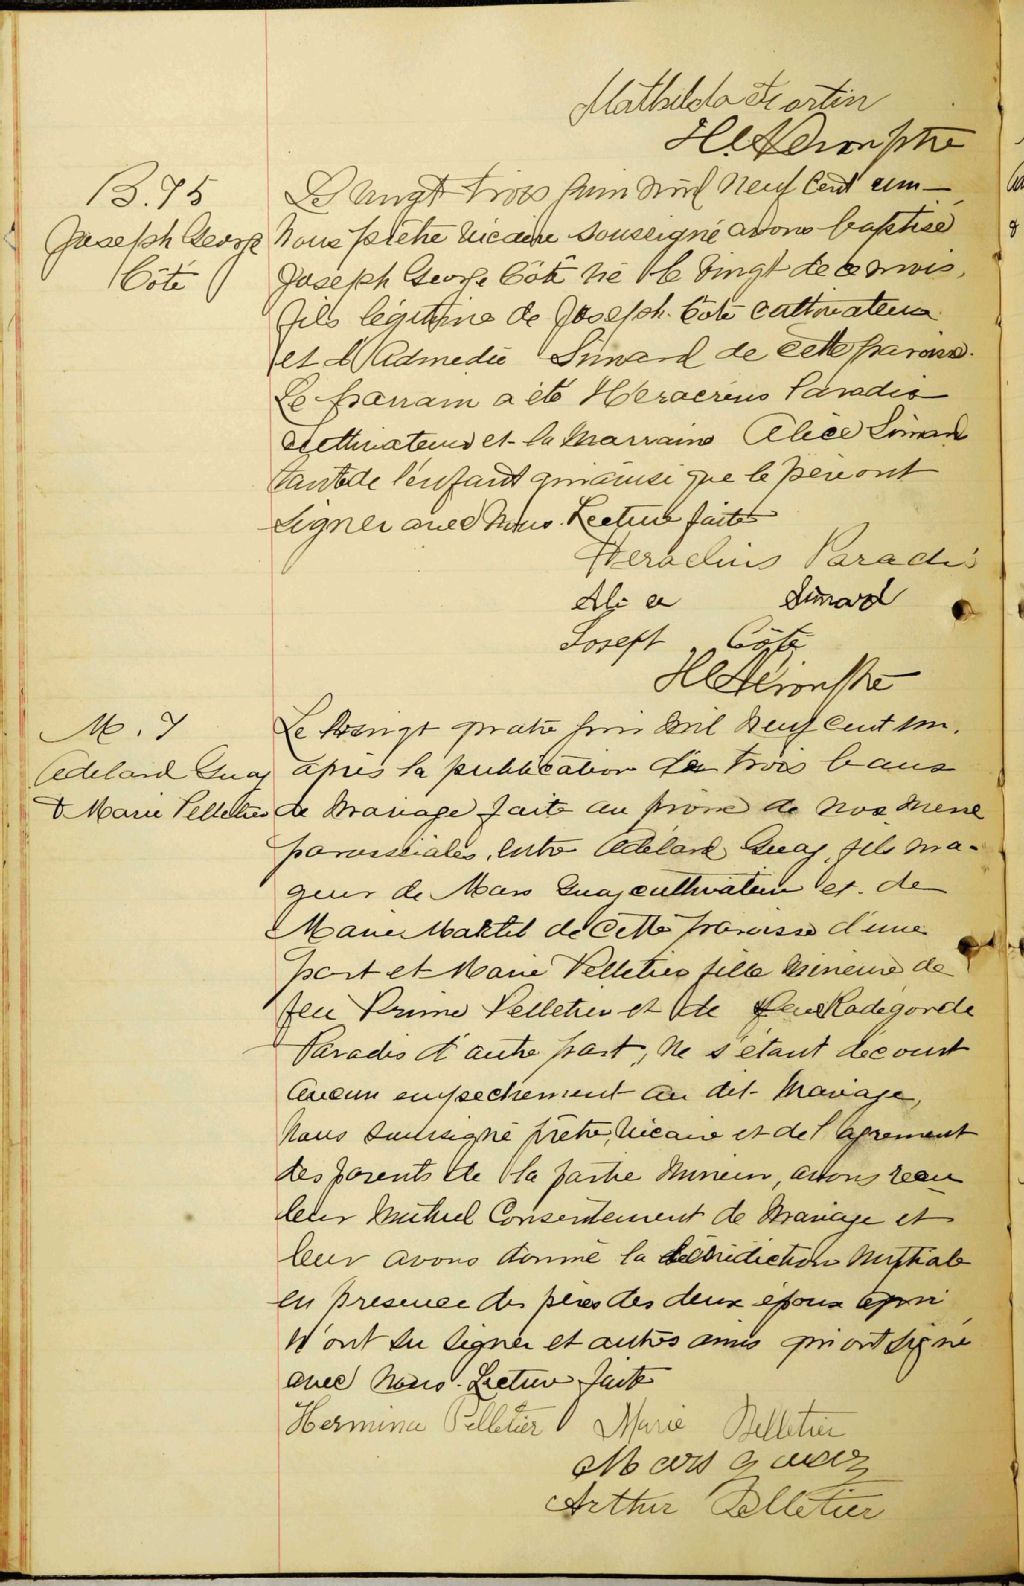 Mathilda Fortin
B. 75
Joseph George
Côté
Le vingt trois juin mil neuf cent un
nous prêtre vicaire soussigné avons baptisé
Joseph George Côté né le vingt de ce mois,
fils légitime de Joseph Côté cultivateur
et d'Admedie Simard de cette paroisse.
Le parrain a été Heraclius Paradis
cultivateur et la marraine Alice Simard
tante de l'enfant qui ainsi que le père ont
signer avec nous. Lecture faite
Heraclius Paradis
Alice Simard
Joseph Côté
M. 7
Adelard Guay
& Marie Pelletier
Le vingt quatre juin mil neuf cent un,
après la publication de trois bans
de mariage faite au prône de nos messe
paroissiales, entre Adélard Guay, fils ma-
geur de Mars Guay cultivateur et de
Marie Martel de cette paroisse d'une
part et Marie Pelletier fille mineure de
feu Prime Pelletier et de feue Radégonde
Paradis d'autre part, ne s'étant décourt
aucun empechement au dit mariage,
nous soussigné prêtre, vicaire et de l'agrement
des parents de la partie mineur, avons recu
leur mutuel consentement de mariage et
leur avons donné la bénédiction nuptiale
en presence des pères des deux époux qui
n'ont su signer et autres amis qui ont signé
avec nous. Lecture faite
Hermina Pelletier Marie Pelletier
Mars Guay
Arthur Pelletier